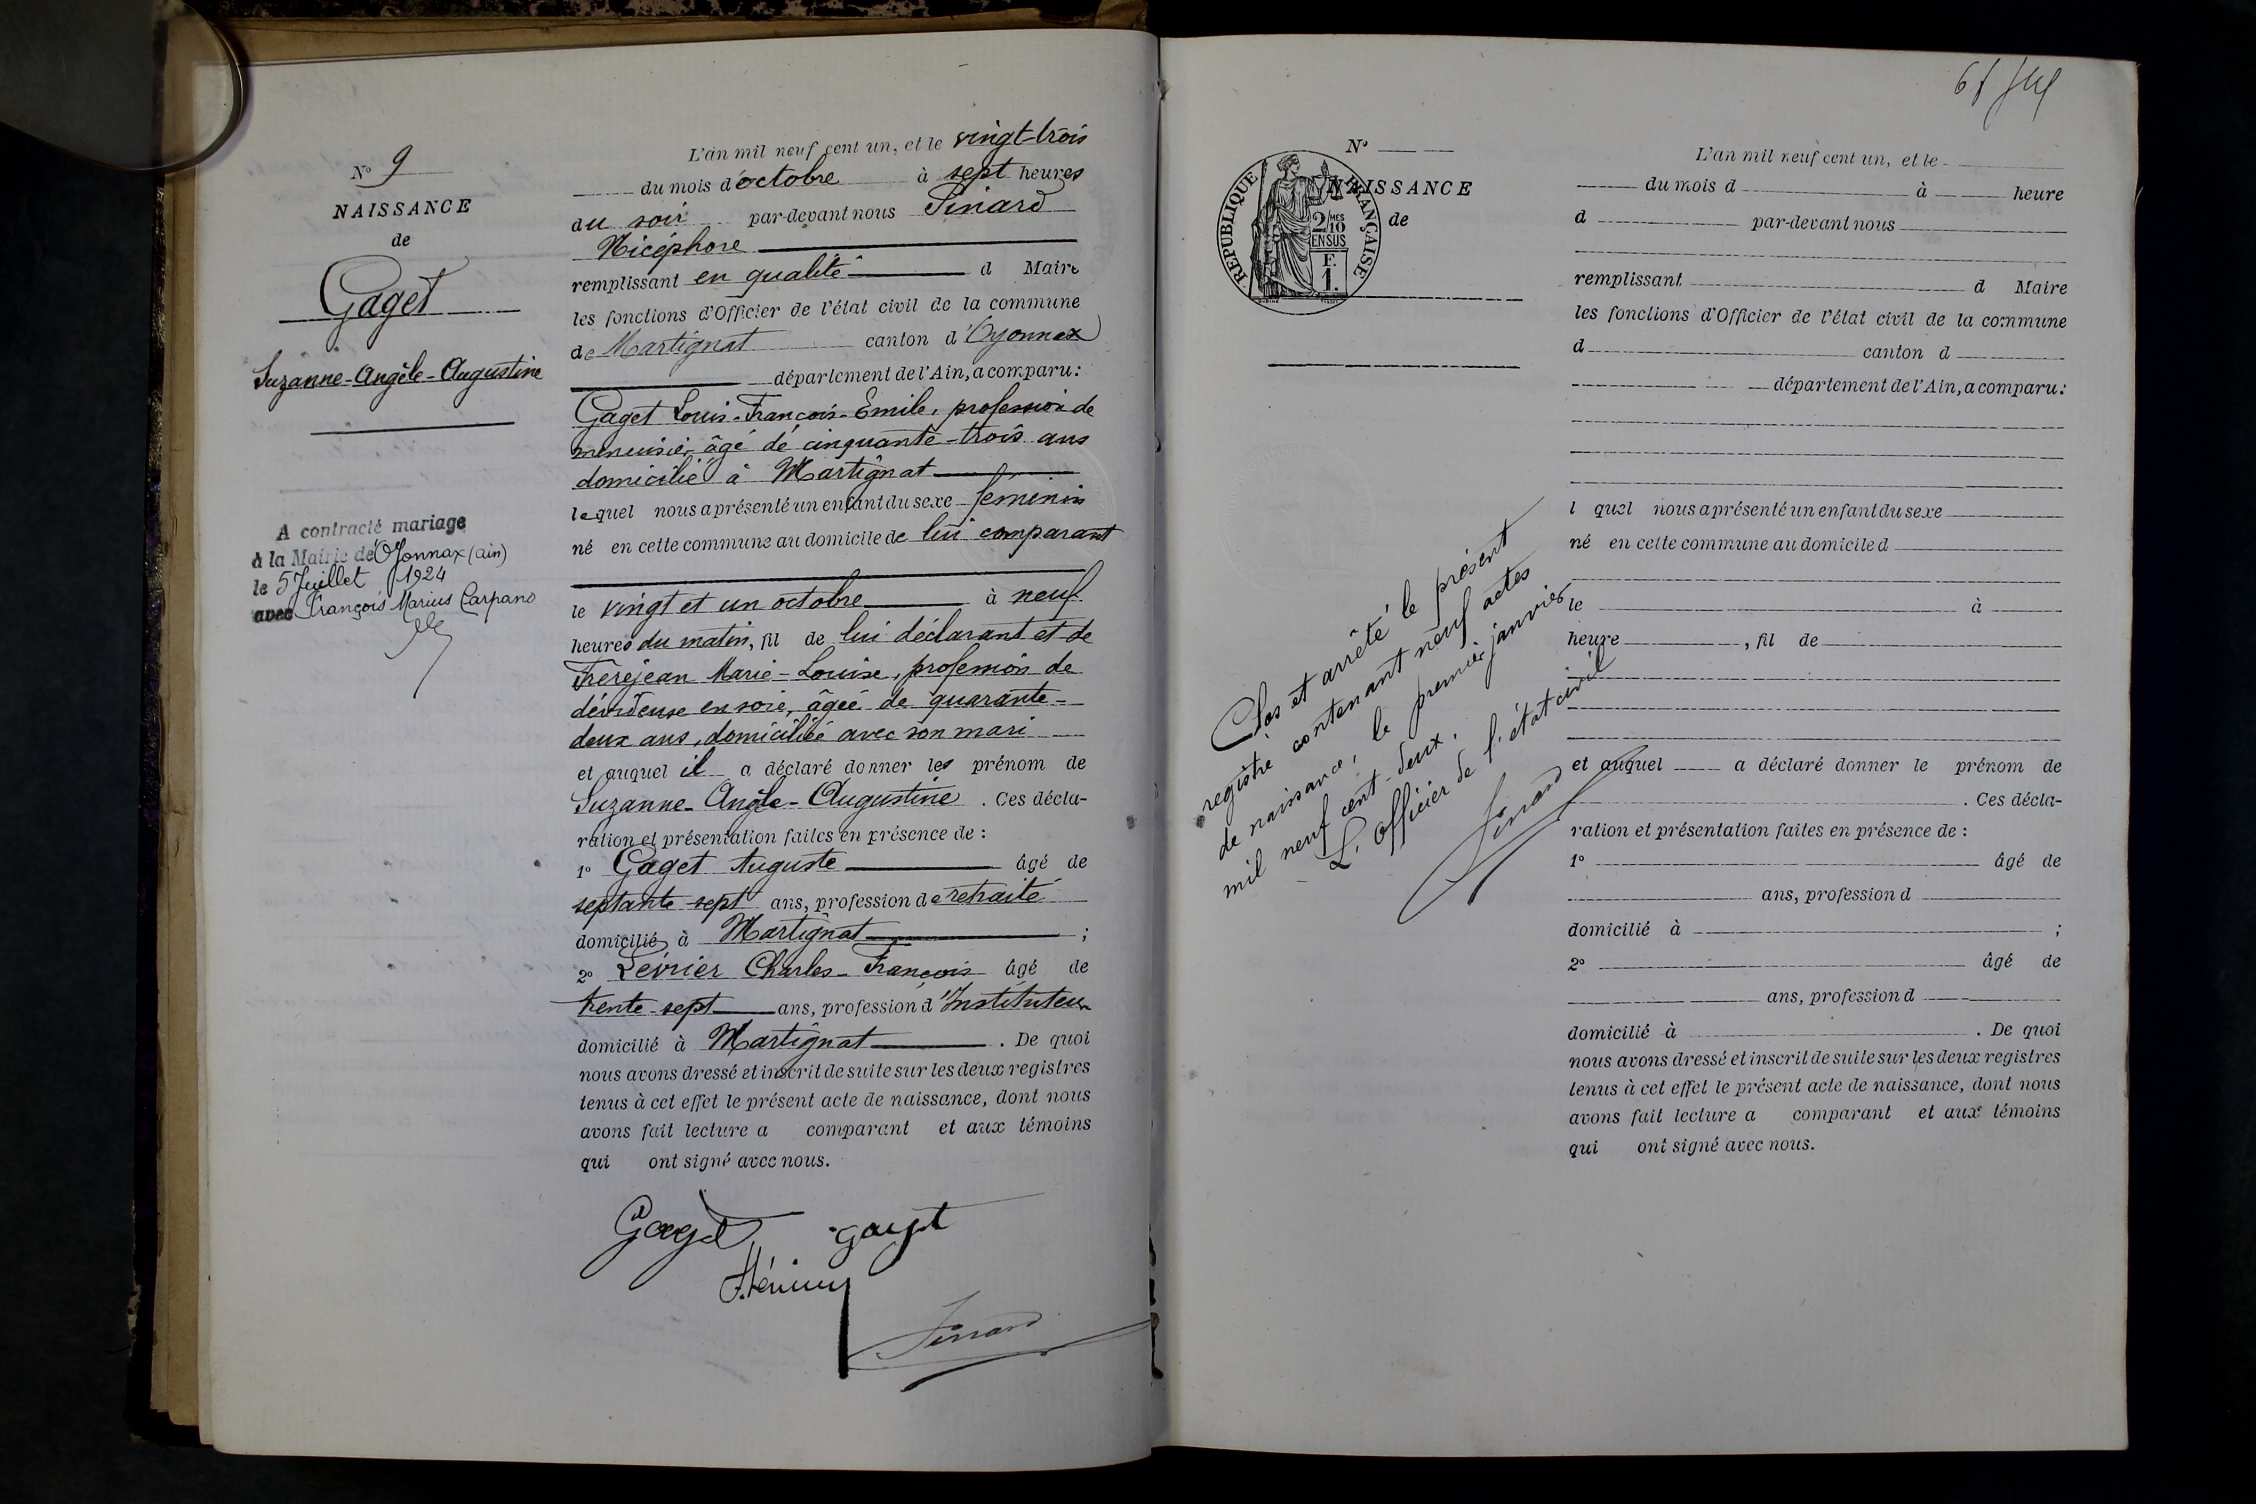 N° 9
NAISSANCE
de
Gaget
Suzanne-Angèle-Augustine
A contracté mariage
à la Mairie de Oyonnax (ain)
le 5 Juillet 1924
avec François Marius Carpano
L'an mil neuf cent un, et le vingt-trois
du mois d'octobre à sept heures
du soir par-devant nous Sinard
Nicéphore
remplissant en qualité d Maire
les fonctions d'Officier de l'état civil de la commune
de Martignat canton d'Oyonnax
département de l'Ain, a comparu :
Gaget Louis-François-Emile, profession de
menuisier, âgé de cinquante-trois ans
domicilié à Martignat
lequel nous a présenté un enfant du sexe féminin
né en cette commune au domicile de lui comparant
le vingt et un octobre à neuf
heures du matin, fil de lui déclarant et de
Frèrejean Marie-Louise, profession de
dévideuse en soie, âgée de quarante-
deux ans, domiciliée avec son mari
et auquel il a déclaré donner les prénom de
Suzanne-Angèle-Augustine. Ces décla-
ration et présentation faites en présence de :
1° Gaget Auguste âgé de
septante-sept ans, profession de retraité
domicilié à Martignat ;
2° Févrièr Charles-François âgé de
trente-sept ans, profession d'Instituteur
domicilié à Martignat. De quoi
nous avons dressé et inscrit de suite sur les deux registres
tenus à cet effet le présent acte de naissance, dont nous
avons fait lecture a comparant et aux témoins
qui ont signé avec nous.
Gaget gaget
Sinard
N°
NAISSANCE
de
RÉPUBLIQUE FRANÇAISE
2 MES
10
EN SUS
F.
1.
Clos et arrêté le présent
registre contenant neuf actes
de naissance, le premier janvier
mil neuf cent-deux.
L'officier de l'état civil
Sinard
L'an mil neuf cent un, et le
du mois d à heure
d par-devant nous
remplissant d Maire
les fonctions d'Officier de l'état civil de la commune
d canton d
département de l'Ain, a comparu :
l quel nous a présenté un enfant du sexe
né en cette commune au domicile d
le à
heure , fil de
et auquel a déclaré donner le prénom de
. Ces décla-
ration et présentation faites en présence de :
1° âgé de
ans, profession d
domicilié à ;
2° âgé de
ans, profession d
domicilié à . De quoi
nous avons dressé et inscrit de suite sur les deux registres
tenus à cet effet le présent acte de naissance, dont nous
avons fait lecture a comparant et aux témoins
qui ont signé avec nous.